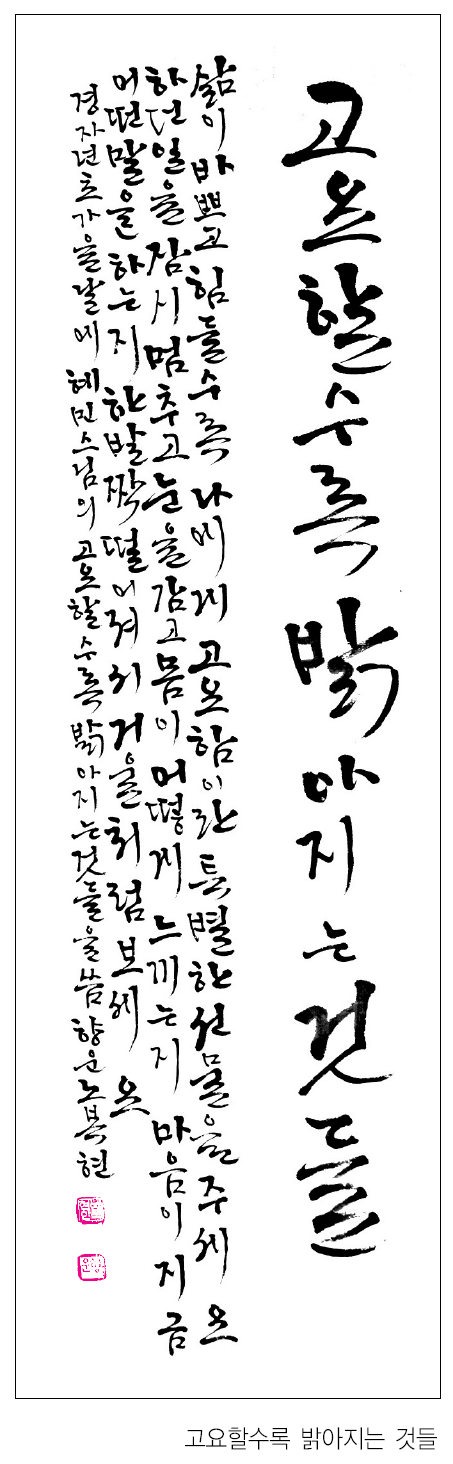 고요할수록 밝아지는것들
삶이 바쁘고 힘들수록 나에게 고요함이란 특별한 선물을 주세요
하던 일을 잠시 멈추고 눈을 감고 몸이 어떻게 느끼는지 마음이 지금
어떤 말을 하는지 한 발짝 떨어져서 거울처럼 보세요
경자년 초가을날에 혜민스님의 고요할수록 밝아지는것들을 씀 향운 노복현
고요할수록 밝아지는 것들